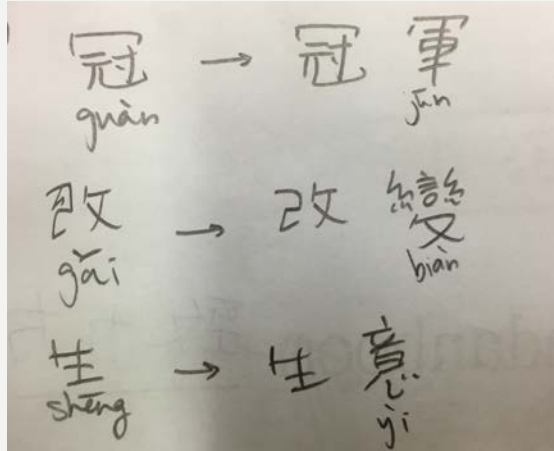 冠 → 冠 軍
guàn jūn
改 → 改 變
gǎi biàn
生 → 生 意
shēng yì